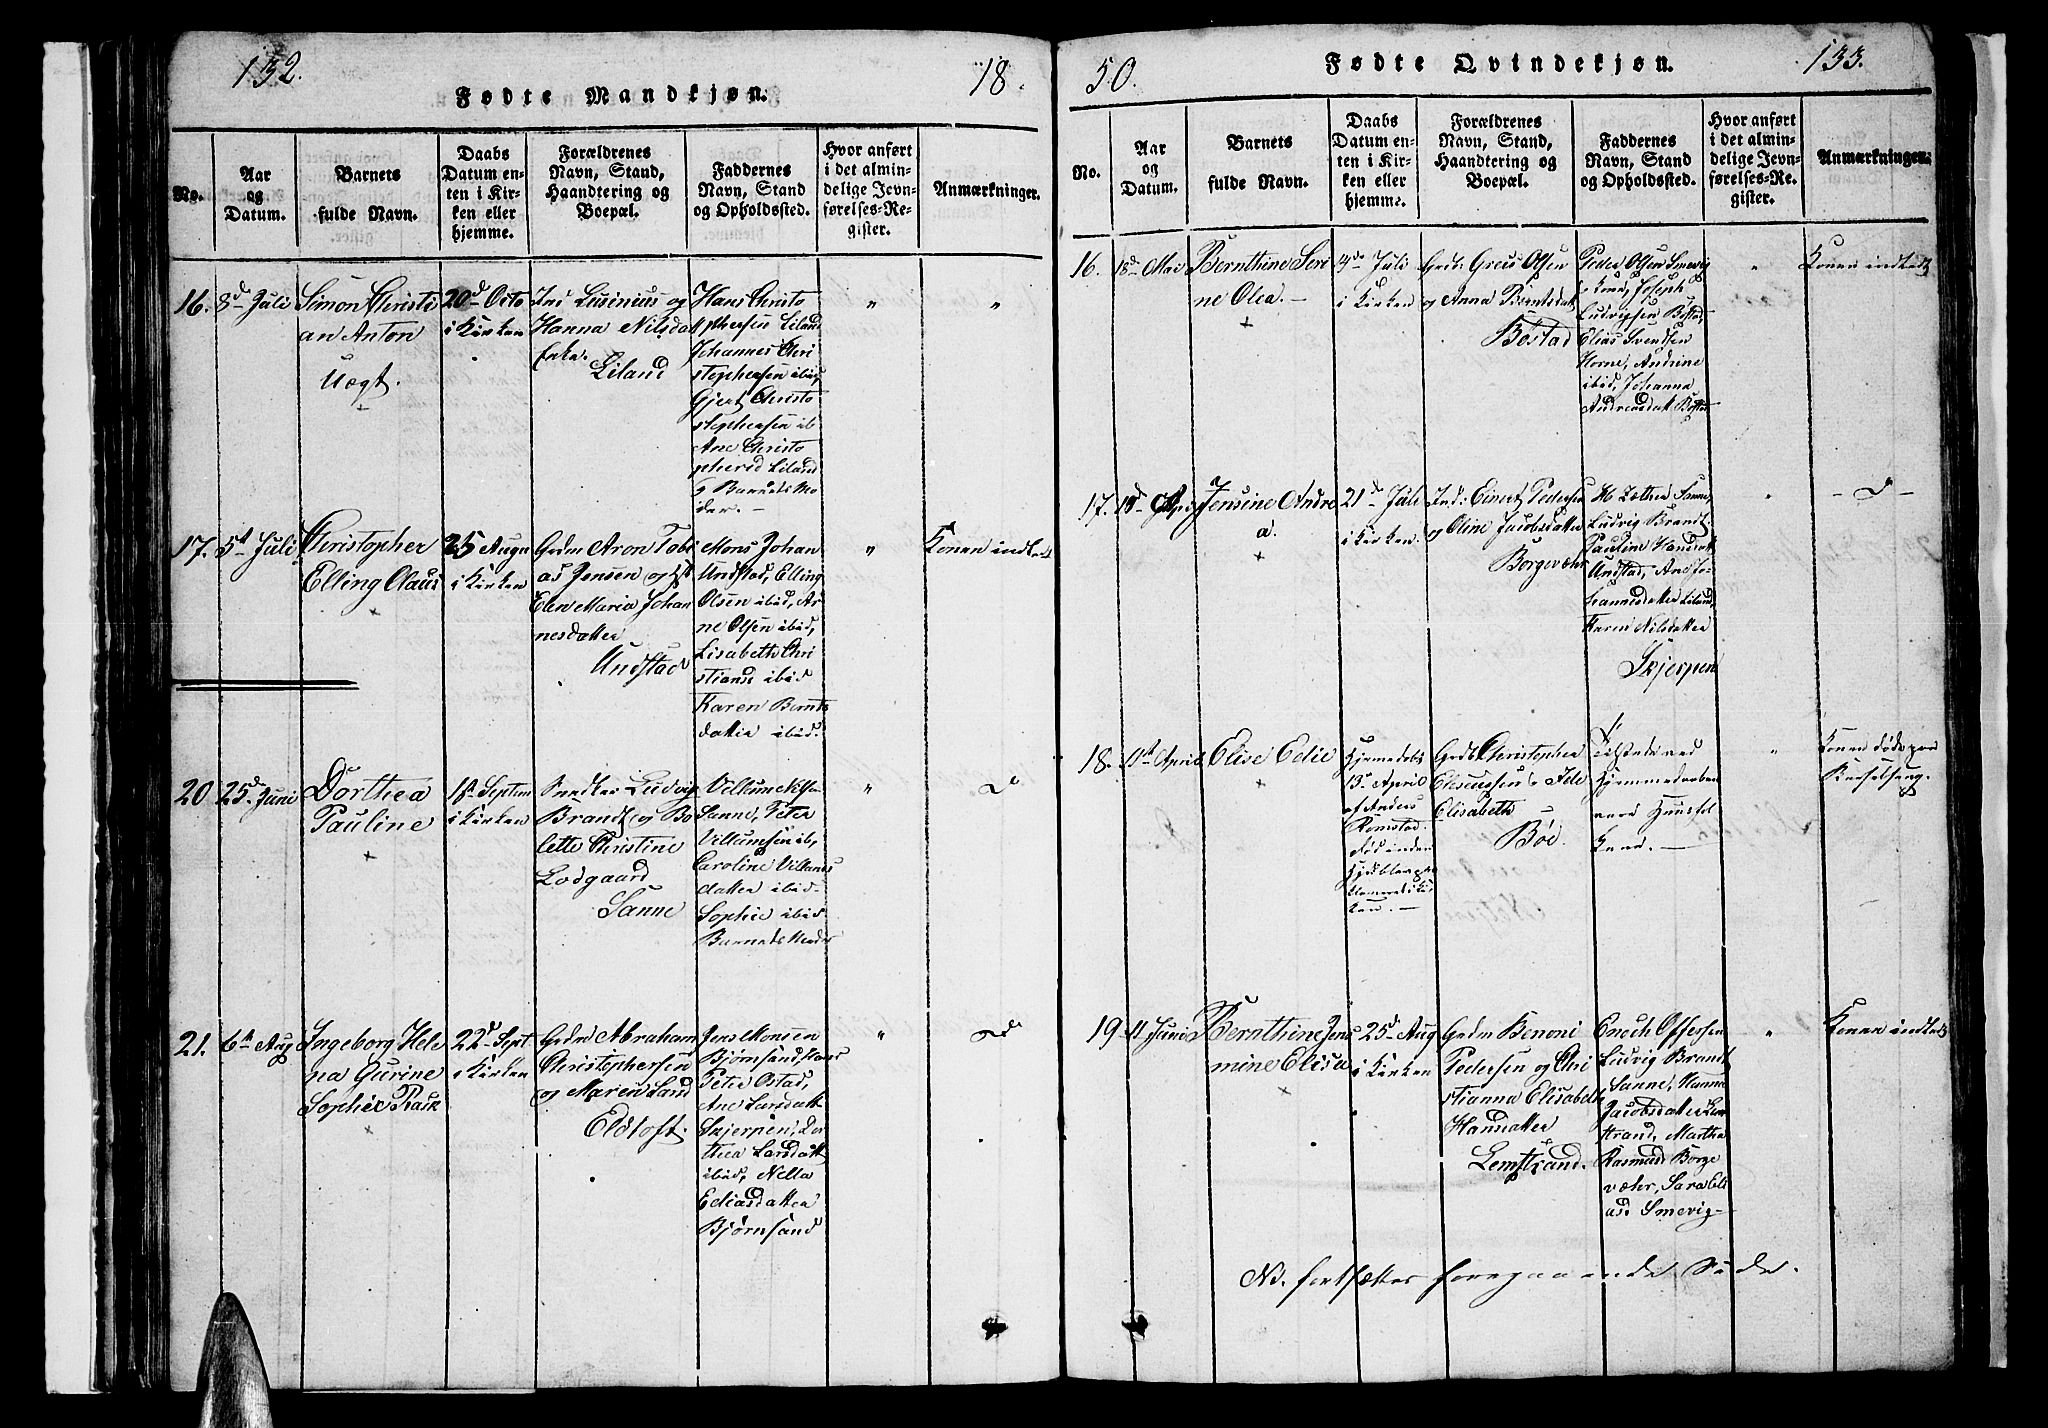 132.
Fødte Mandkjøn.
18
No.
Aar
og
Datum.
Barnets
fulde Navn.
Daabs
Datum en-
ten i Kir-
ken eller
hjemme.
Forældrenes
Navn, Stand,
Haandtering og
Boepæl.
Faddernes
Navn, Stand
og Opholdssted.
Hvor anført
i det almin-
delige Jevn-
førelses-Re-
gister.
Anmærkninger.
16.
8d Juli
Simon Christi
an Anton
Uægt.
20d Octo
i Kirken
Lusinius og
Hanna Nilsdatt
Enke.
Liland
Hans Christo
phersen Liland
Johannes Chri
stophersen ibid,
Gjert Christo
stophersen ib
Ane Christo
phersd Liland
g Barnets Mo
der. —
"
"
17.
5t Juli
Christopher
Elling Olaus
25 Augu
i Kirken
Grdm Aron Tobi
as Jensen og
Elen Maria Johan
nesdatter
Undstad
Mons Johan
Undstad, Elling
Olsen ibid, Ar
ne Olsen ibid,
Lisabeth Chri
stiansd ibid
Karen Bernts
datter ibid.
"
Konen indledt
20
25d Juni
Dorthea
Pauline
18d Septem
i Kirken
Ludvig
Brandt og Bo
lette Christine
Lodgaard
Sanne
Villum
Sanne, Peter
Villumsen ib,
Caroline Villums
datter ibid
Sophie ibid
Barnets Moder
"
d
21.
6t Aug
Ingeborg Hele
na Gurine
Sophie Rask
22d Sept
i Kirken
Grdm Abraham
Christophersen
og Maren Land
Eldtoft.
Jens Monsen
Bjørnsand, Hans
Peter Ostad,
Ane Larsdatt
Skjerpen, Dor
thea Larsdatt
ibid, Nella
Eliasdatter
Bjørnsand
"
d
50.
Fødte Qvindekjøn.
133.
No.
Aar
og
Datum.
Barnets
fulde Navn.
Daabs
Datum en-
ten i Kir-
ken eller
hjemme.
Forældrenes
Navn, Stand,
Haandtering og
Boepæl.
Faddernes
Navn, Stand
og Opholdssted.
Hvor anført
i det almin-
delige Jevn-
førelses-Re-
gister.
Anmærkninger.
16.
18d Mai
Bernthine Seri
ne Olea. —
Juli
i Kirken
Greis Olsen
og Anna Berntsdatt
Bøstad
Peder Olsen Smevig
Joseph
Ludvigsen Bøstad,
Elias Svendsen
Horne, Andrine
ibid, Johanna
Andreasdatt Bøstad
"
Konen indledt
17.
Jensine Andre
a.
21d Juli
i Kirken.
Einert Pedersen
og Oline Jacobsdatter
Borgevæhr
Sanne,
Ludvig Brandt
Pauline Hansdatt
Undstad, Ane Jo
hannesdatter Liland,
Karen Nilsdatter
Skjerpen
"
— d —
18.
11t April
Elise Edie
Hjemmedøbt
13d April
af Anders
Romstad.
ken. —
Christopher
Elisabeth
Bøe.
ved
Hjemmedaaben
vare Huusfol
"
Konen døde paa
Barselseng.
19
11 Juni
Bernthine Jens
mine Elisa
25d Aug
i Kirken
Grdm Benoni
Pedersen og Chri
stianna Elisabeth
Hansdatter
Lemstrand.
Enoch Offersen
Ludvig Brandt
Sanne, Hanna
Jacobsdatter Lem
strand, Martha
Rasmusd Borge
væhr, Sara Eli
asd. Smevig —
"
Konen indledt
No. fortsættes foregaaende Side.